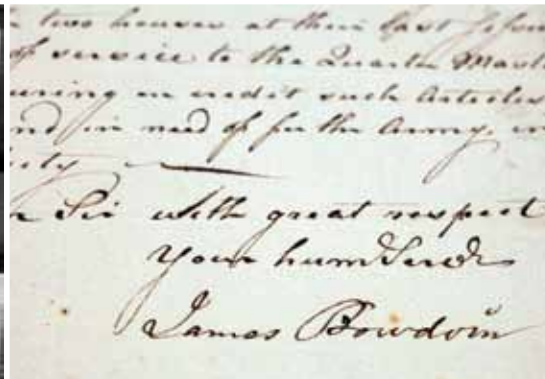 two houses at their last
of service to the Quarter Mast
uring on credit such Articles
nd in need of for the Army, in
Sir with great respect
Your hum Servt
James Bowdoin